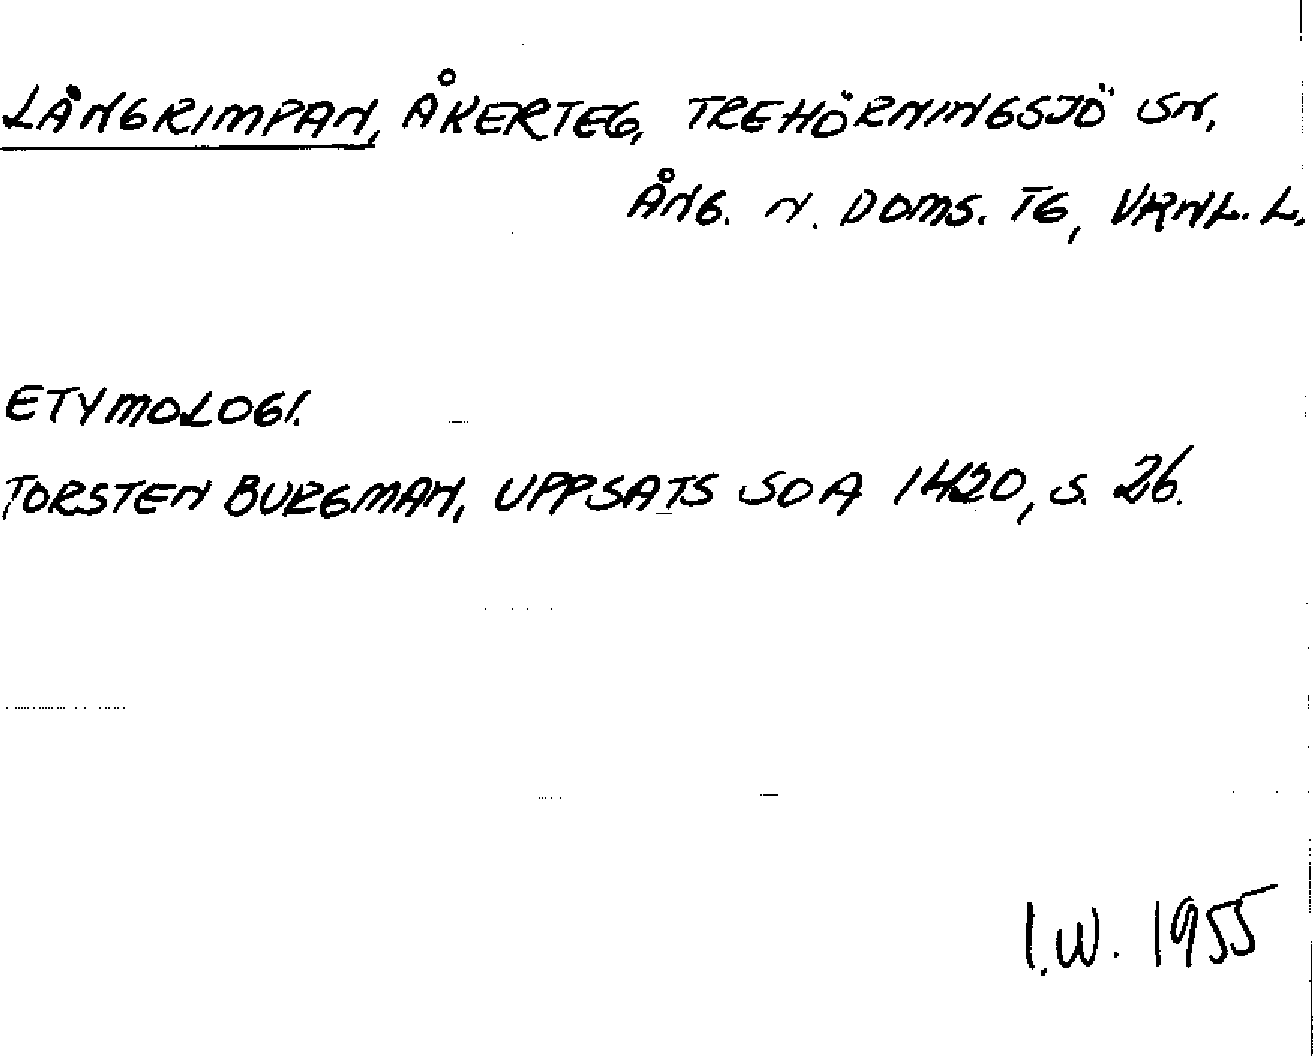 LÅNGRIMPAN, ÅKERTEG, TREHÖRNINGSJÖ SN,
ÅNG. N. DOMS. TG, VRNL. L.
ETYMOLOGI.
TORSTEN BURGMAN, UPPSATS SOA 1420, S. 26.
I.W. 1955